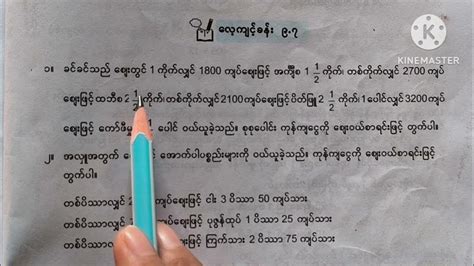 လေ့ကျင့်ခန်း ၉.၇
K
KINEMASTER
၁။ ခင်ခင်သည် ဈေးတွင် 1 ကိုက်လျှင် 1800 ကျပ်ဈေးဖြင့် အင်္ကျီစ 1 1/2 ကိုက်၊ တစ်ကိုက်လျှင် 2700 ကျပ်
ဈေးဖြင့် ထဘီစ 2 1/2 ကိုက်၊ တစ်ကိုက်လျှင် 2100 ကျပ်ဈေးဖြင့် ပိတ်ဖြူ 2 1/2 ကိုက်၊ 1 ပေါင်လျှင် 3200 ကျပ်
ဈေးဖြင့် ကော်ဖီမှုန့် 1 ပေါင် ဝယ်ယူခဲ့သည်။ စုစုပေါင်း ကုန်ကျငွေကို ဈေးဝယ်စာရင်းဖြင့် တွက်ပါ။
၂။ အလှူအတွက် အောက်ပါပစ္စည်းများကို ဝယ်ယူခဲ့သည်။ ကုန်ကျငွေကို ဈေးဝယ်စာရင်းဖြင့်
တွက်ပါ။
တစ်ပိဿာလျှင် ကျပ်ဈေးဖြင့် ငါး 3 ပိဿာ 50 ကျပ်သား
တစ်ပိဿာလျှင် ကျပ်ဈေးဖြင့် ပုဇွန်ထုပ် 1 ပိဿာ 25 ကျပ်သား
တစ်ပိဿာလျှင် ကျပ်ဈေးဖြင့် ကြက်သား 2 ပိဿာ 75 ကျပ်သား